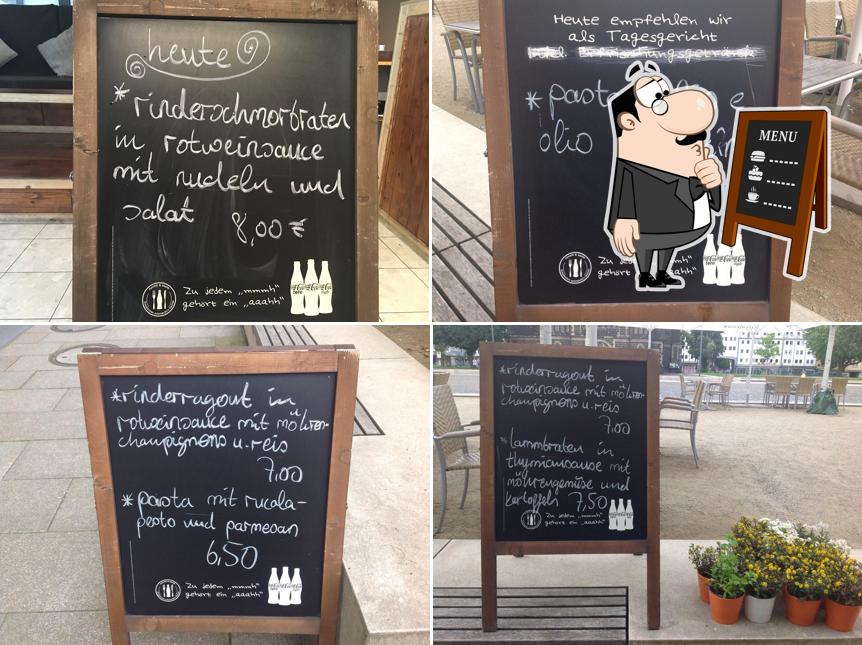 heute
* rinderschmorbraten
in rotweinsauce
mit nudeln und
salat
8,00 €
Zu jedem „mmmh“
gehört ein „aaahh“
Heute empfehlen wir
als Tagesgericht
Erfrischungsgetränk
* pasta
olio
MENU
Zu
geh
* rinderragout in
rotweinsauce mit möhren-
champignons u. reis
7,00
* pasta mit rucola-
pesto und parmesan
6,50
Zu jedem „mmmh“
gehört ein „aaahh“
* rinderragout in
rotweinsauce mit möhren-
champignons u. reis
7,00
* lammbraten in
thymiansauce mit
möhrengemüse und
kartoffeln 7,50
Zu jedem „mmmh“
gehört ein „aaahh“